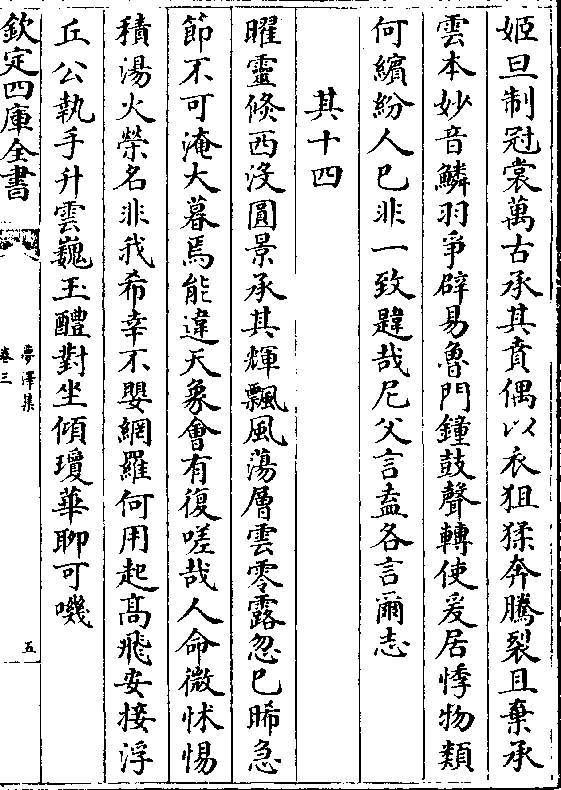 姬旦制冠裳萬古承其賁偶以衣狙猱奔騰裂且棄承
雲本妙音鱗羽爭辟易魯門鐘鼓聲轉使爰居悸物類
何繽紛人已非一致韙哉尼父言盍各言爾志
其十四
曜靈倐西沒圓景承其輝飄風蕩層雲零露忽已晞急
節不可淹大暮焉能違天象會有復嗟哉人命微怵惕
積湯火榮名非我希幸不嬰網羅何用起高飛安接浮
丘公執手升雲巍玉醴對坐傾瓊華聊可嘰
欽定四庫全書
夢澤集
卷三
五